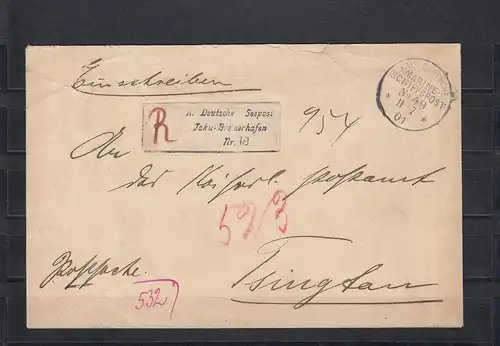 Einschreiben
KAIS. DEUTSCHE
MARINE-
SCHIFFSPOST
No 49
11 7
01
R
K. Deutsche Seepost
Taku-Bremerhafen
Nr. 48
954
An
das Kaiserl. Postamt
Tsingtau
Postsache.
532